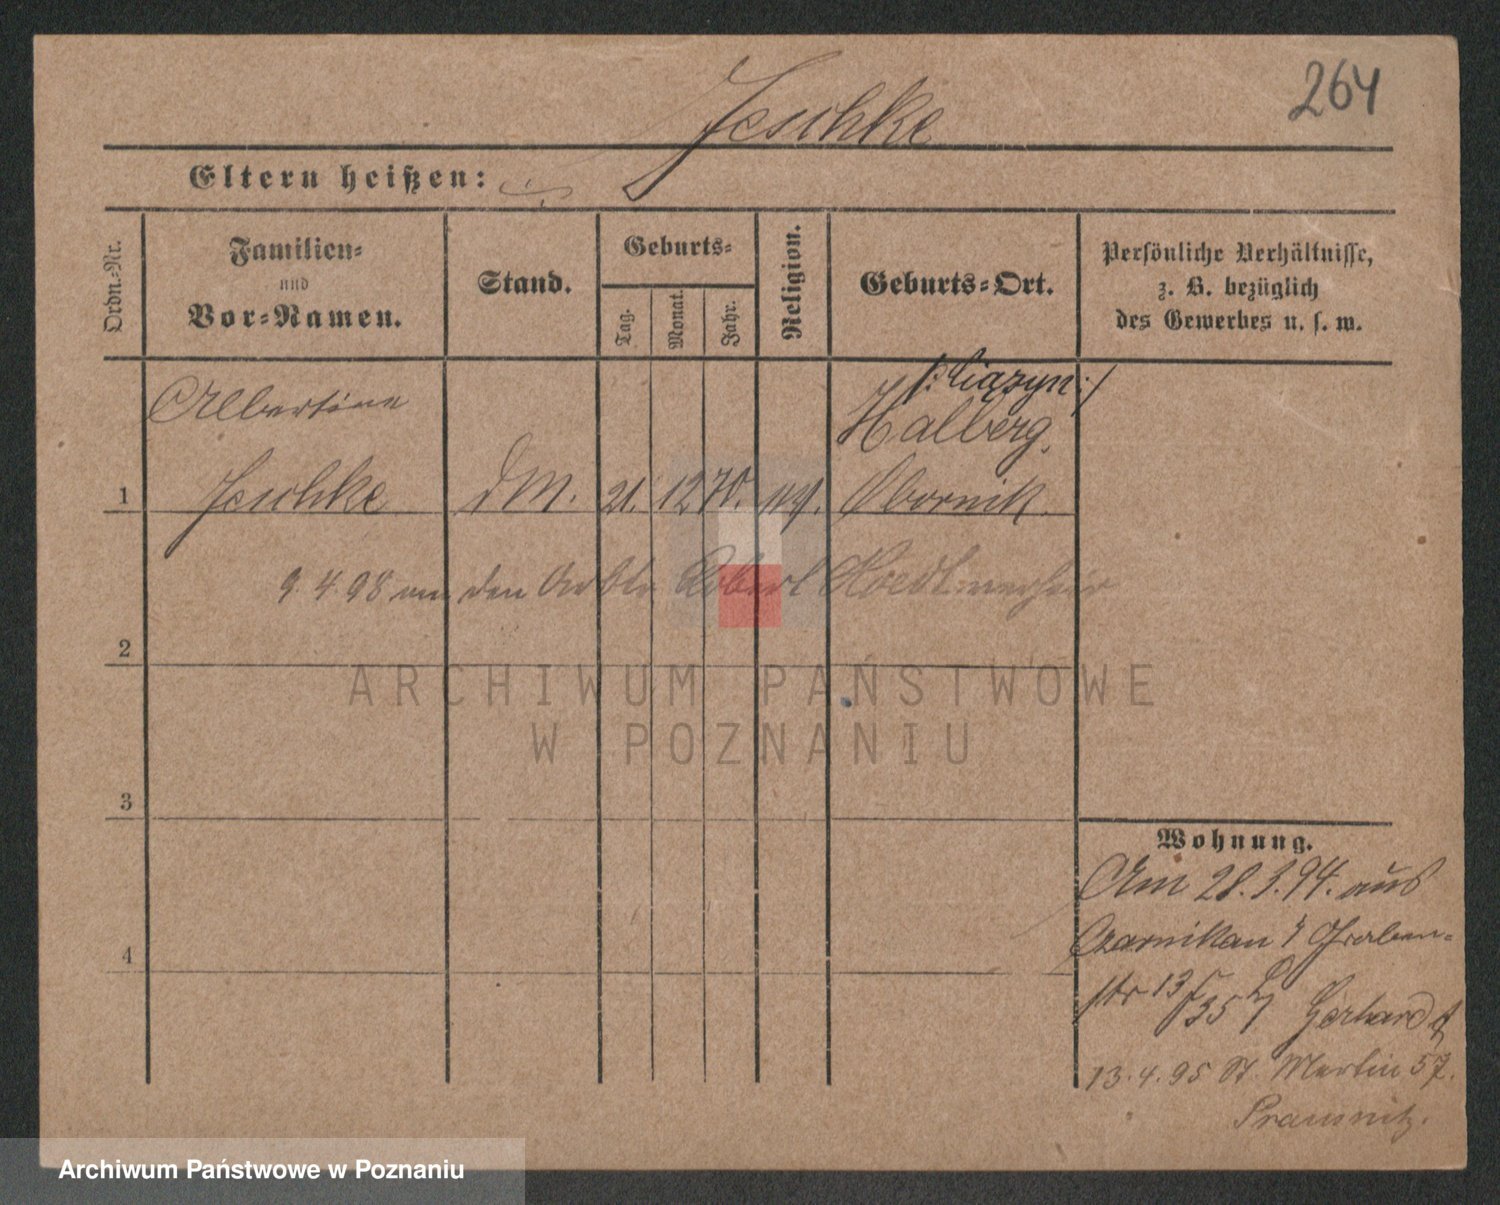 264
Jeschke
Eltern heißen:
Ordn.=Nr.
Familien=
und
Vor=Namen.
Stand.
Geburts=
Tag.
Monat.
Jahr.
Religion.
Geburts=Ort.
Persönliche Verhältnisse,
z. B. bezüglich
des Gewerbes u. s. w.
Albertine
Halberg,
1 Jeschke DM. 21. 12 70. Obornik.
9.4.98 an den Robert verheir
2
ARCHIWUM PAŃSTWOWE
W POZNANIU
3
Wohnung.
Am 28.3.94. aus
Czarnikau Graben=
4
str 13 Gerhard
13.4.95 St. Martin 57.
Archiwum Państwowe w Poznaniu